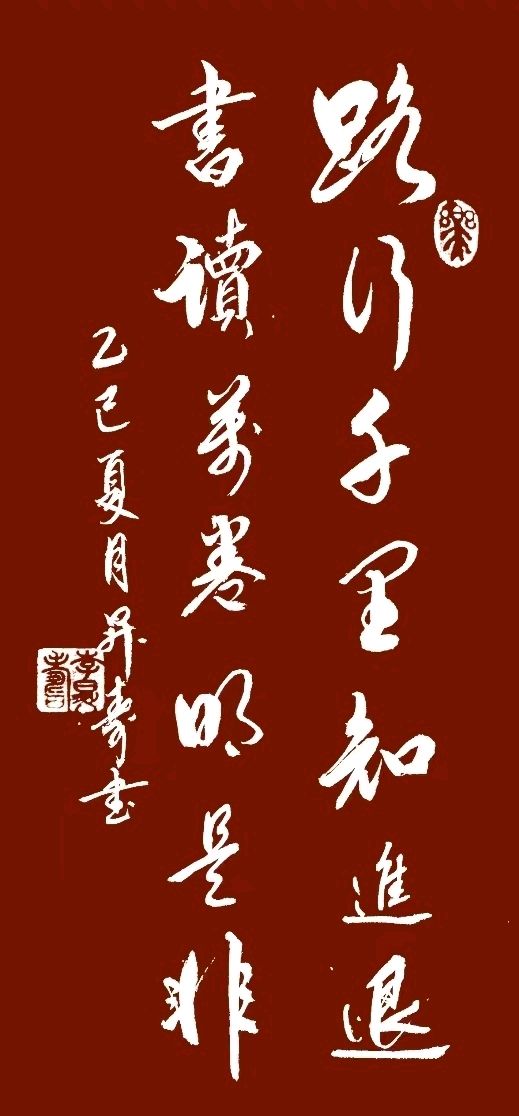 路行千里知進退
書讀萬卷明是非
乙巳夏月昇壽書